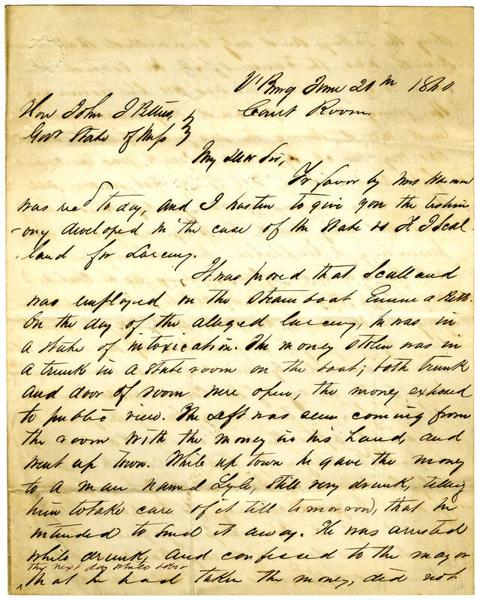 V'Burg June 20th 1860
Court Room
Hon John J Pettus
Govr State of Miss
My Dear Sir,
Yr favor by Mrs
was recd to day, and I hasten to give you the testim-
ony developed in the case of the State vs H J Scal-
land for Larceny.
It was proved that Scalland
was employed on the steam boat Emma
On the day of the alleged larceny, he was in
a state of intoxication. The money stolen was in
a trunk in a state room on the boat; both trunk
and door of room were open, the money exposed
to public view. The deft was seen coming from
the room with the money in his hand and
went up town. While up town he gave the money
to a man named Lyle, still very drunk, telling
him to take care of it till tomorrow, that he
intended to send it away. He was arrested
while drunk, and confessed to the mayor
the next day while sober
that he had taken the money, did not